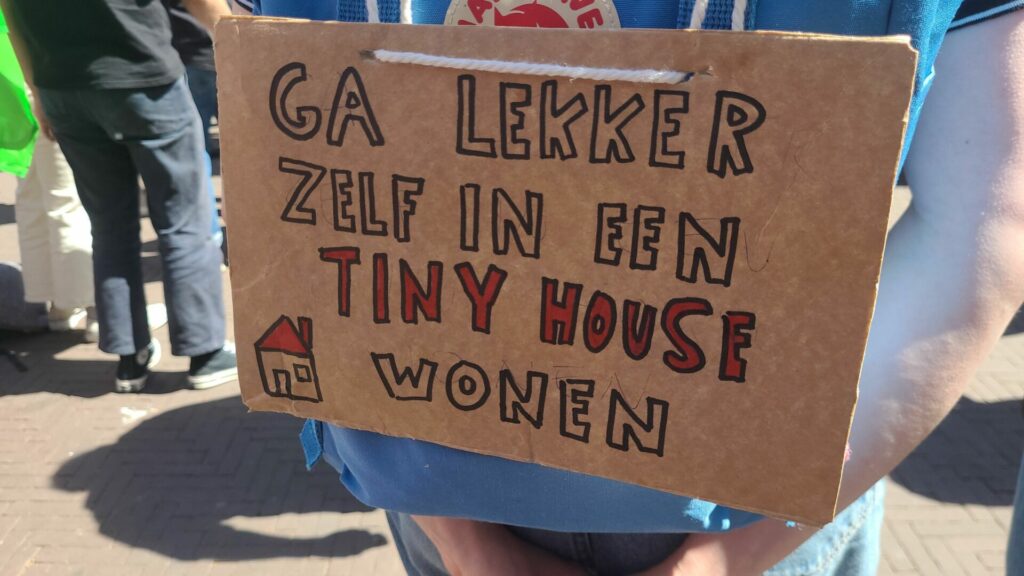 GA LEKKER
ZELF IN EEN
TINY HOUSE
WONEN